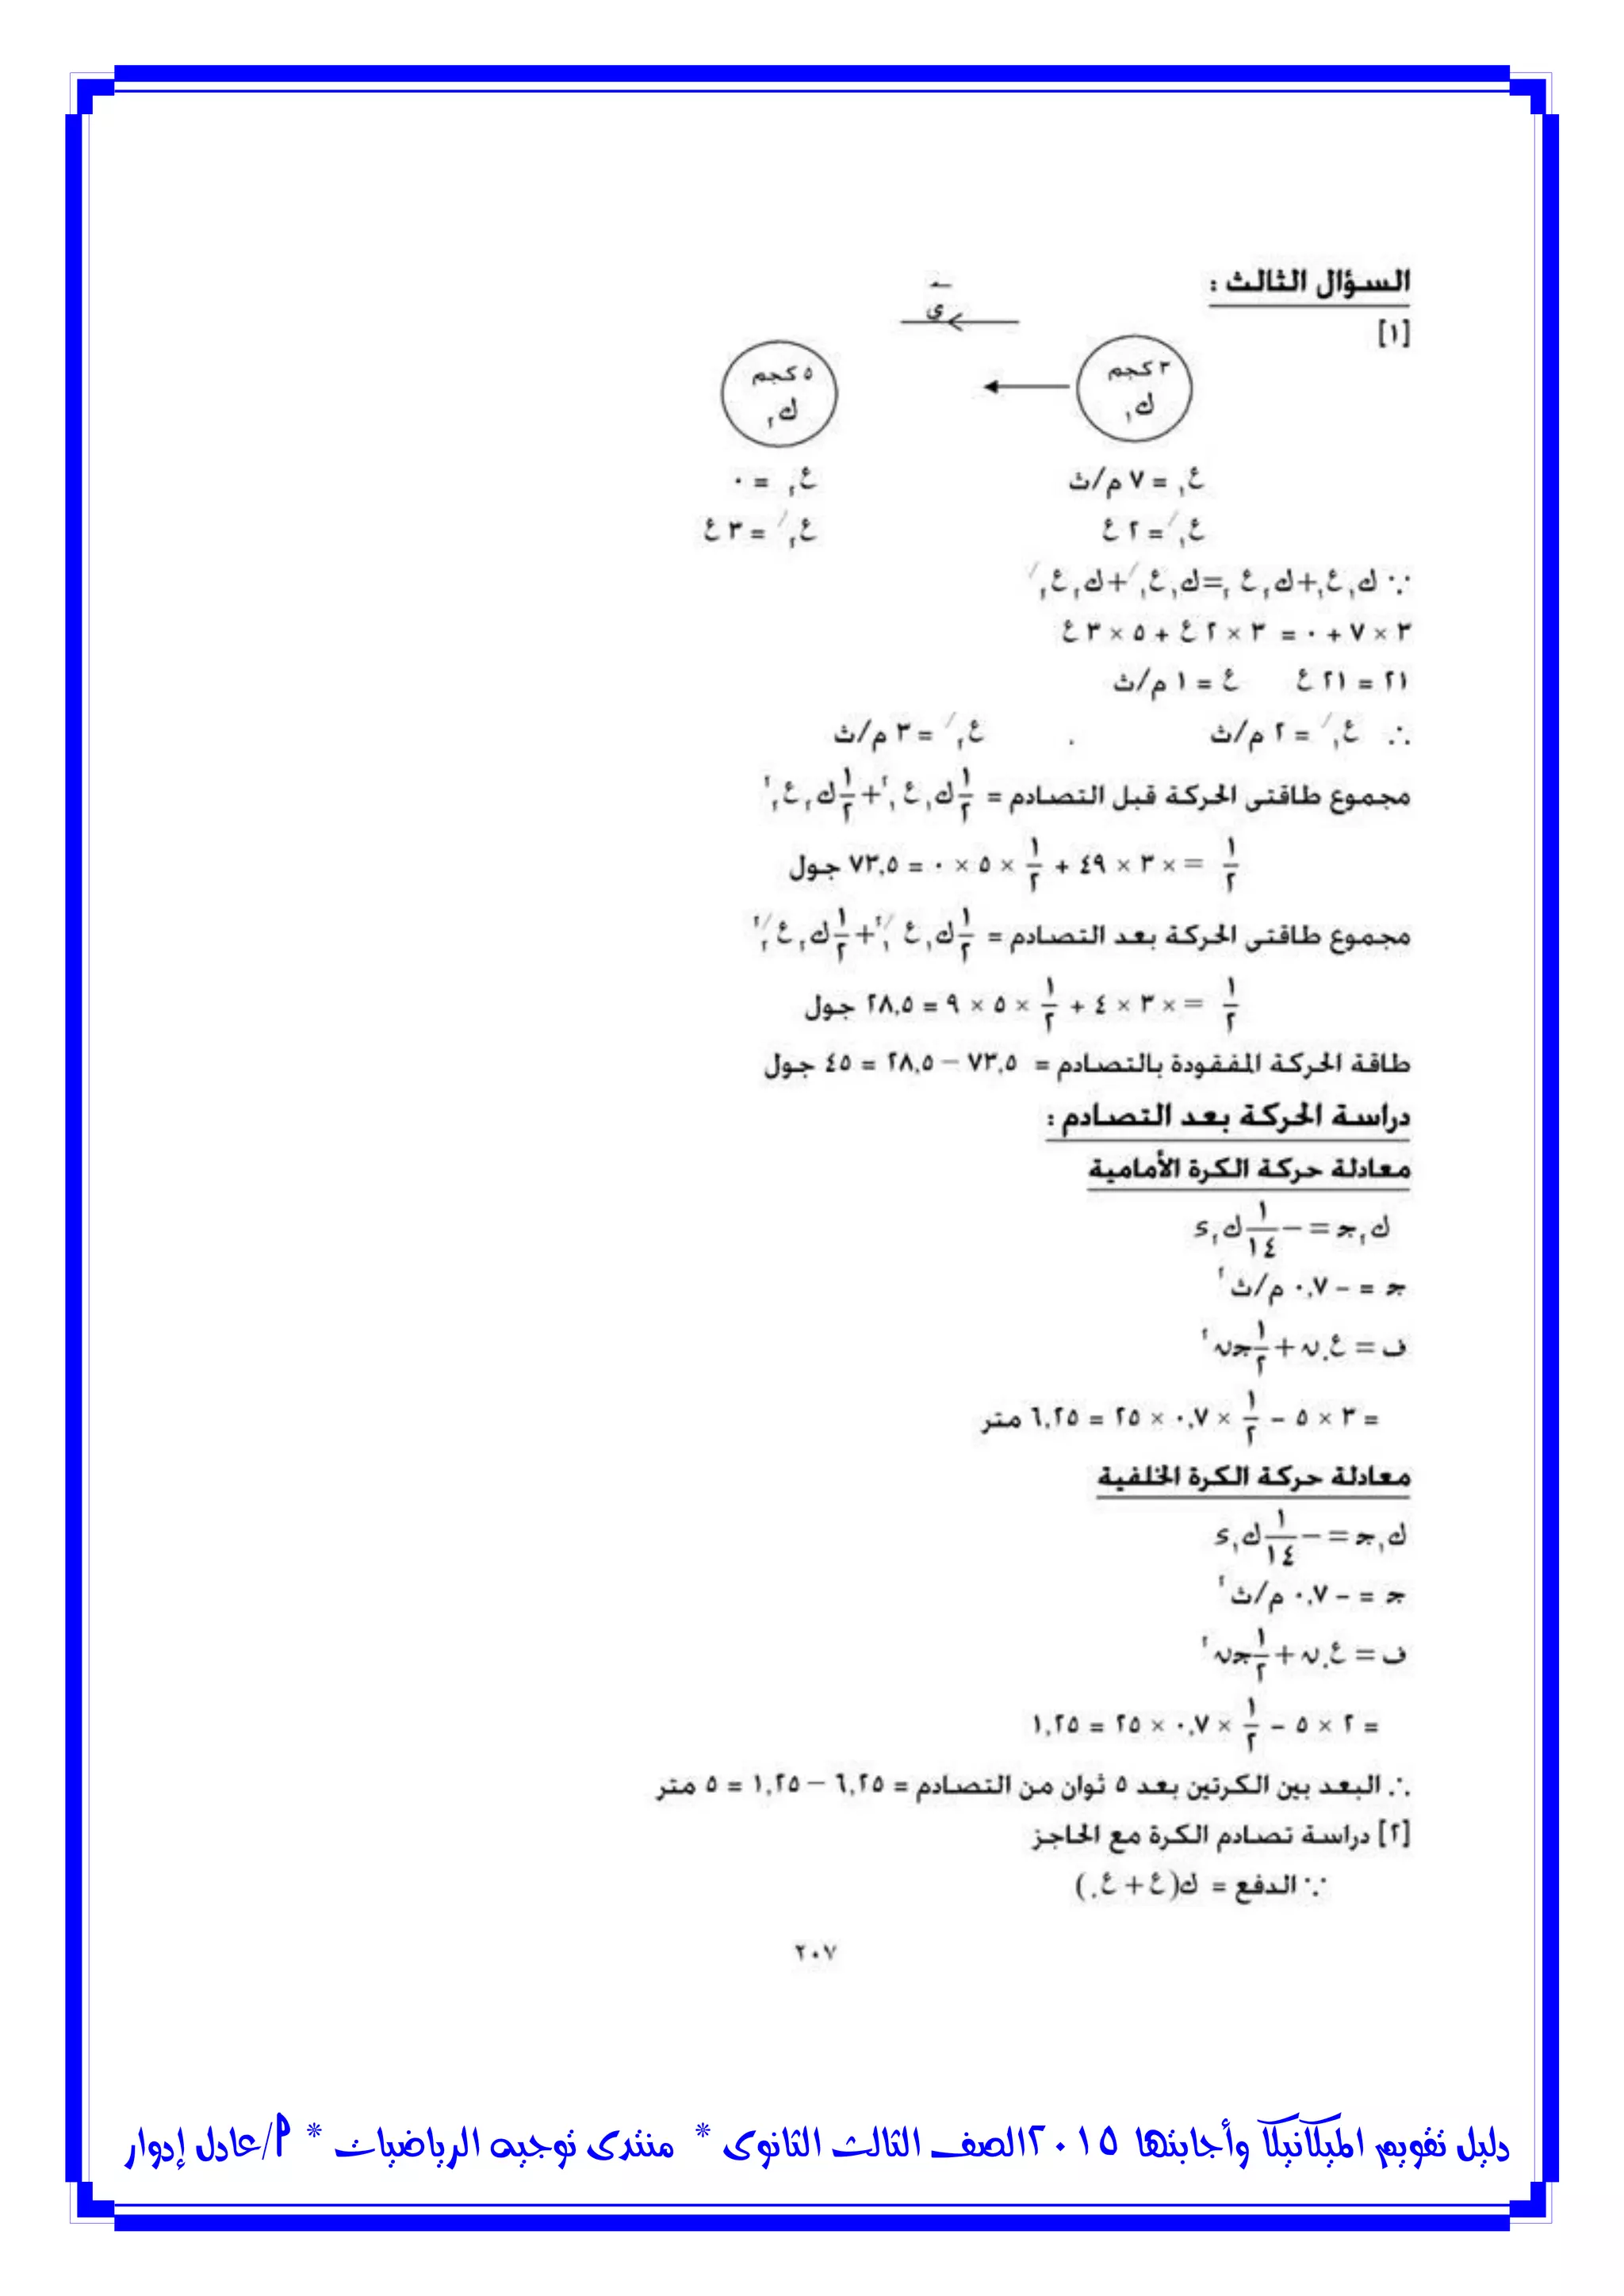 السؤال الثالث :
[١]
ى
٣ كجم
ك١
٥ كجم
ك٢
ع١ = ٧ م/ث
ع٢ = ٠
ع١/ = ٢ ع
ع٢/ = ٣ ع
∵ ك١ع١+ك٢ع٢=ك١ع١/+ك٢ع٢/
٣ × ٧ + ٠ = ٣ × ٢ ع + ٥ × ٣ ع
٢١ = ٢١ ع ع = ١ م/ث
∴ ع١/ = ٢ م/ث . ع٢/ = ٣ م/ث
مجموع طاقتى الحركة قبل التصادم = ١/٢ ك١ع١² + ١/٢ ك٢ع٢²
١/٢ = × ٣ × ٤٩ + ١/٢ × ٥ × ٠ = ٧٣,٥ جول
مجموع طاقتى الحركة بعد التصادم = ١/٢ ك١ع١/² + ١/٢ ك٢ع٢/²
١/٢ = × ٣ × ٤ + ١/٢ × ٥ × ٩ = ٢٨,٥ جول
طاقة الحركة المفقودة بالتصادم = ٧٣,٥ − ٢٨,٥ = ٤٥ جول
دراسة الحركة بعد التصادم :
معادلة حركة الكرة الأمامية
ك٢جـ = − ١/١٤ ك٢ء
جـ = - ٠,٧ م/ث²
ف = ع٠ن + ١/٢ جـن²
= ٣ × ٥ - ١/٢ × ٠,٧ × ٢٥ = ٦,٢٥ متر
معادلة حركة الكرة الخلفية
ك١جـ = − ١/١٤ ك١ء
جـ = - ٠,٧ م/ث²
ف = ع٠ن + ١/٢ جـن²
= ٢ × ٥ - ١/٢ × ٠,٧ × ٢٥ = ١,٢٥
∴ البعد بين الكرتين بعد ٥ ثوان من التصادم = ٦,٢٥ − ١,٢٥ = ٥ متر
[٢] دراسة تصادم الكرة مع الحاجز
∵ الدفع = ك(ع + ع٠)
٢٠٧
دليل تقويم الميكانيكا وأجابتها ٢٠١٥ الصف الثالث الثانوى * منتدى توجيه الرياضيات * م/عادل إدوار